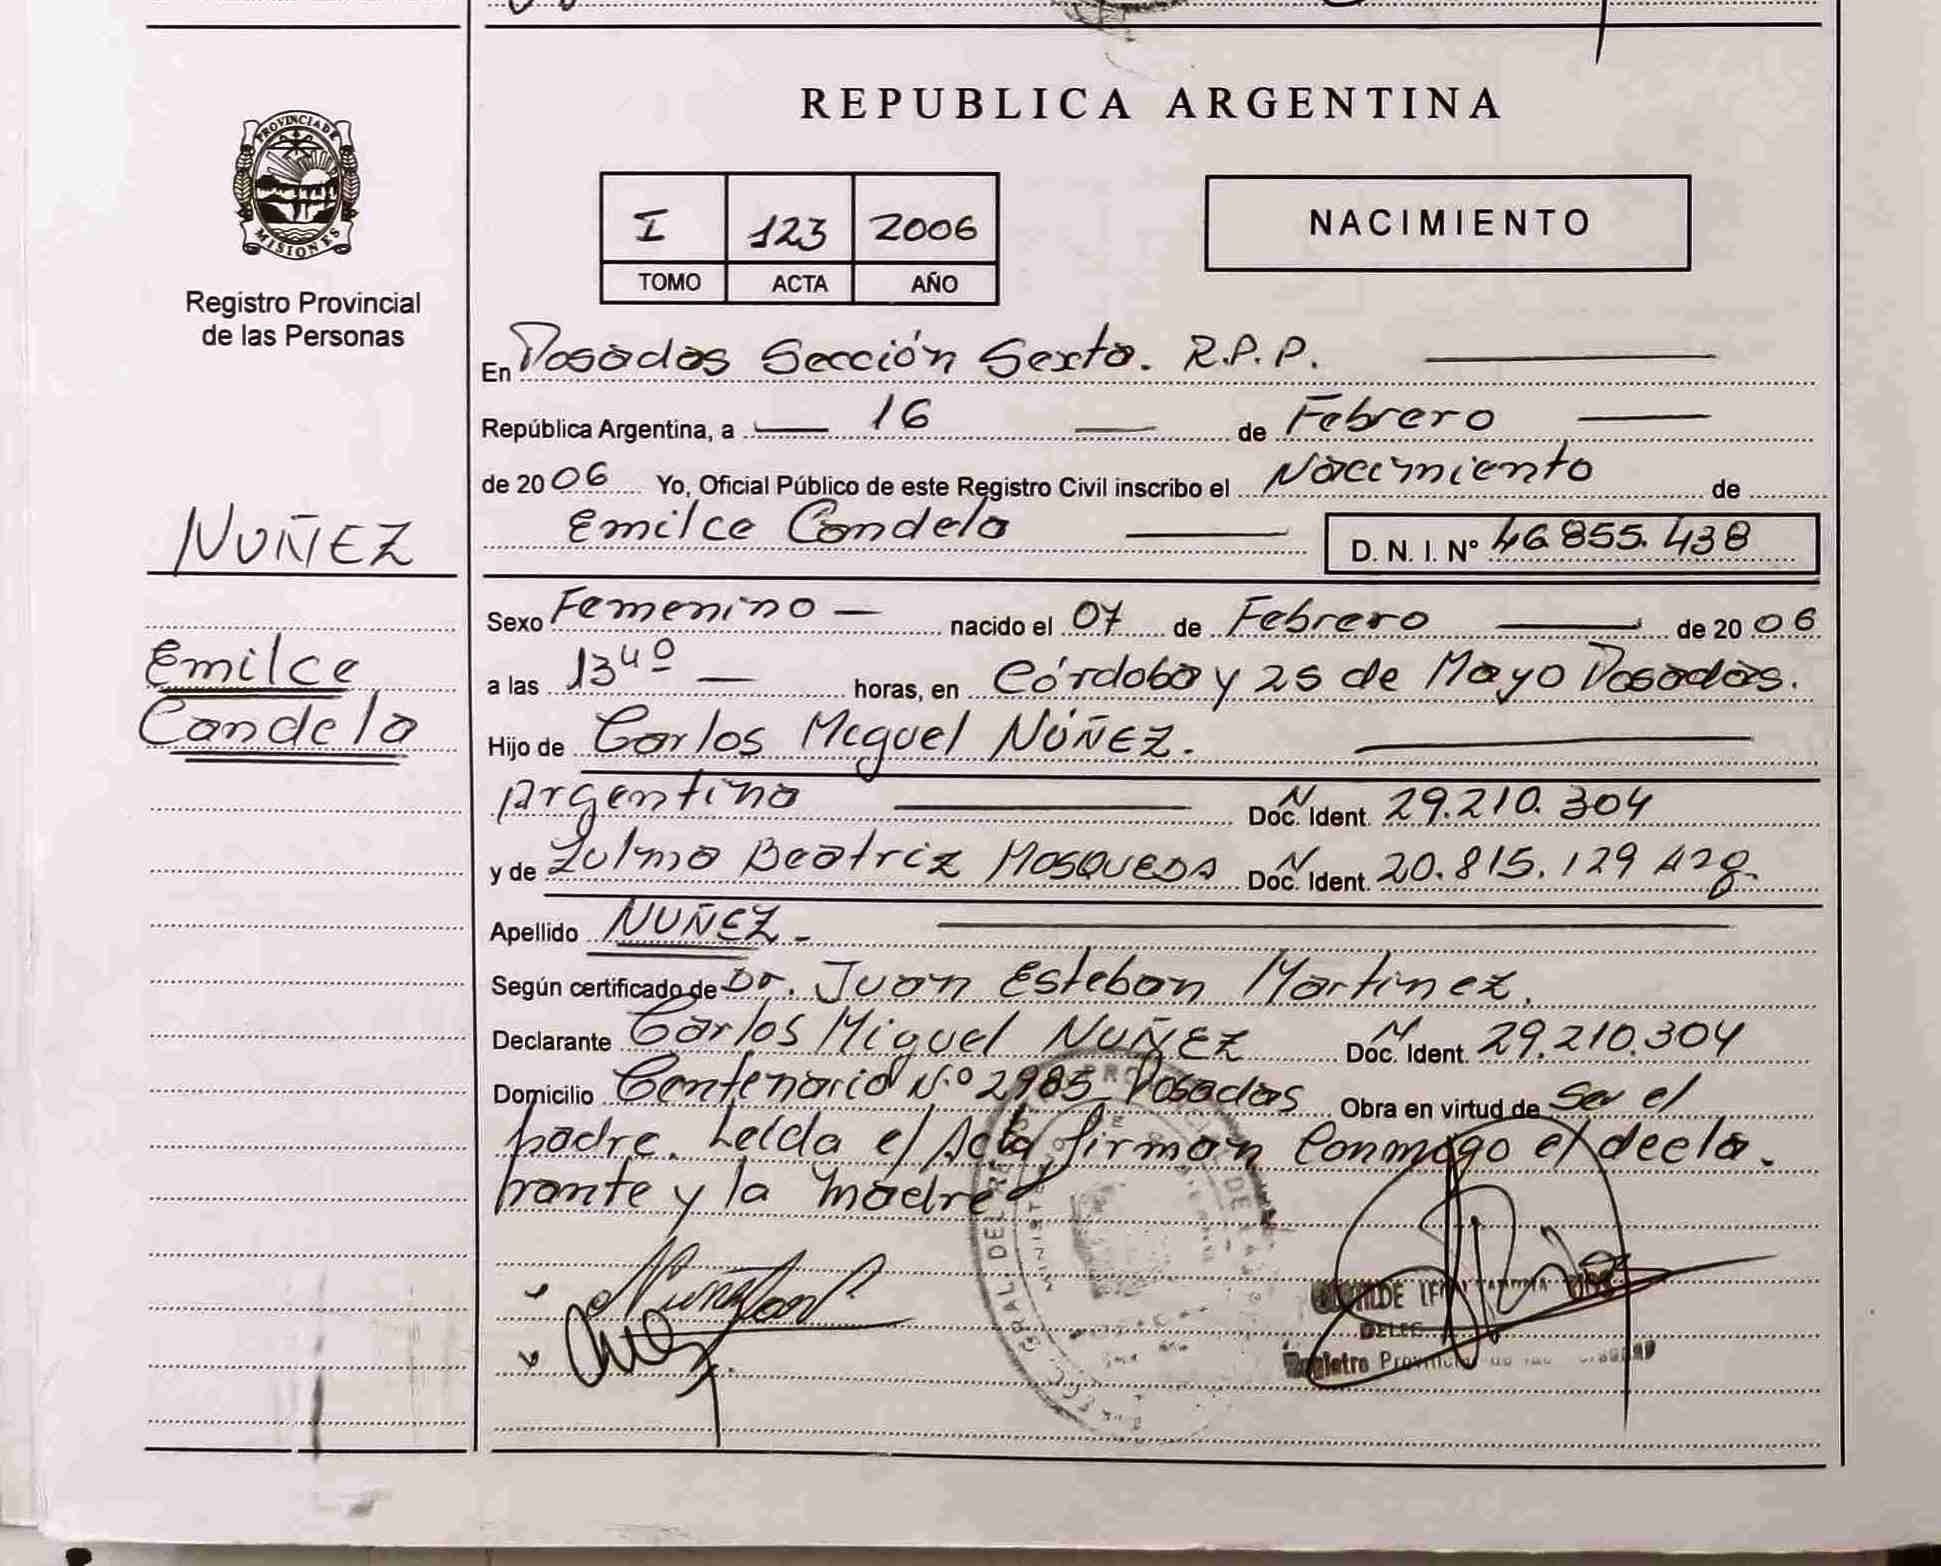 PROVINCIA DE
MISIONES
Registro Provincial
de las Personas
NUÑEZ
Emilce
Candela
REPUBLICA ARGENTINA
I 123 2006
TOMO ACTA AÑO
NACIMIENTO
En Posadas Sección Sexta. R.P.P.
República Argentina, a 16 de Febrero
de 2006 Yo, Oficial Público de este Registro Civil inscribo el Nacimiento de
Emilce Candela D. N. I. Nº 46.855.438
Sexo Femenino nacido el 07 de Febrero de 2006
a las 13 40 horas, en Córdoba y 25 de Mayo Posadas.
Hijo de Carlos Miguel NÚÑEZ.
Argentino Doc. Ident. 29.210.304
y de Zulma Beatriz MOSQUEDA Doc. Ident. 20.815.129 Arg.
Apellido NUÑEZ.
Según certificado de Dr. Juan Esteban Martinez.
Declarante Carlos Miguel NUÑEZ Doc. Ident. 29.210.304
Domicilio Centenario Nº 2985 Posadas Obra en virtud de ser el
padre. Leída el Acta, firman conmigo el decla-
rante y la madre
Registro Provincial de las